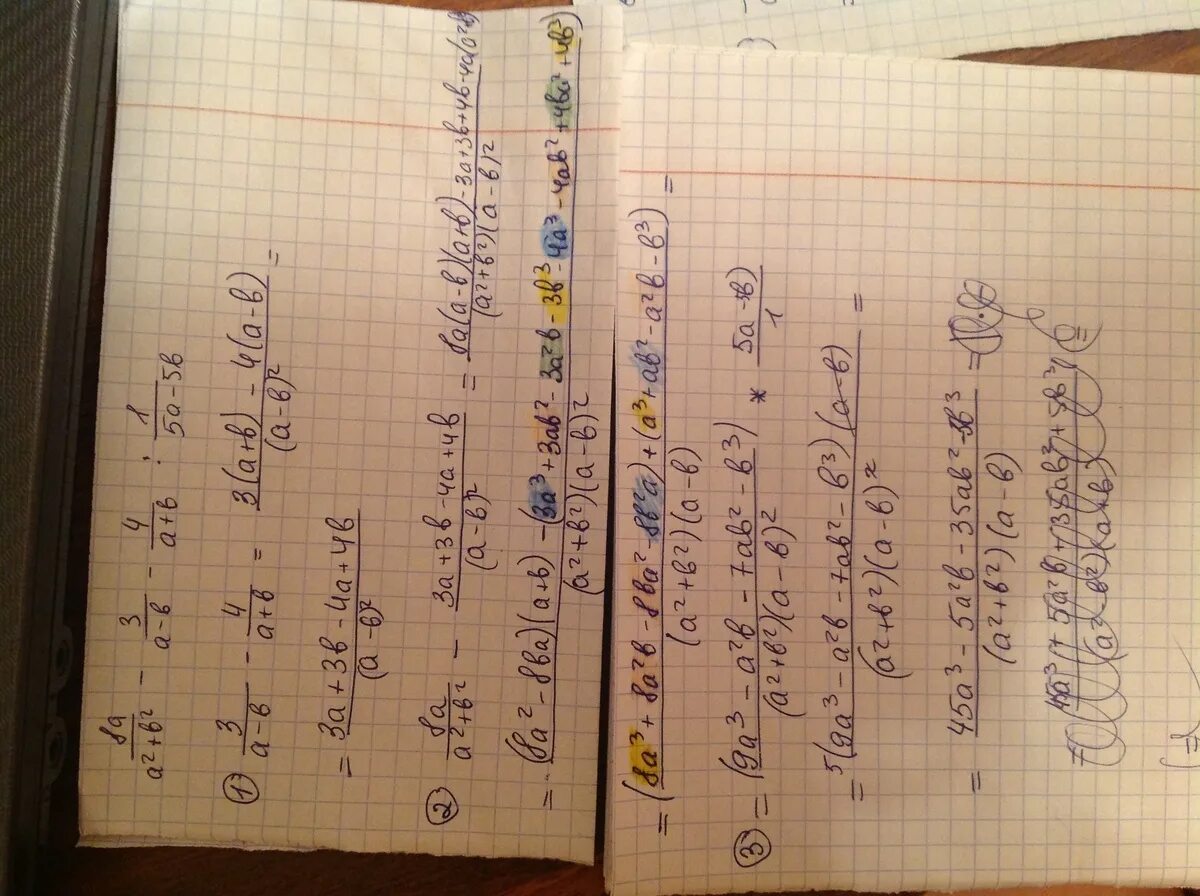 8a/(a²+b²) − 3/(a−b) − 4/(a+b) : 1/(5a−5b)
1) 3/(a−b) − 4/(a+b) = (3(a+b) − 4(a−b))/(a−b)² =
= (3a+3b−4a+4b)/(a−b)²
2) 8a/(a²+b²) − (3a+3b−4a+4b)/(a−b)² = (8a(a−b)(a+b)−3a+3b+4b−4a(a²b))/((a²+b²)(a−b)²
= (8a²−8ba)(a+b)−(3a³+3ab²−3a²b−3b³−4a³−4ab²+4ba²+4b³)/((a²+b²)(a−b)²
=(8a³+8a²b−8ba²−8b²a)+(a³+ab²−a²b−b³)/((a²+b²)(a−b) =
3) = (9a³−a²b−7ab²−b³)/((a²+b²)(a−b)² * (5a−5b)/1
= 5(9a³−a²b−7ab²−b³)(a−b)/((a²+b²)(a−b)² =
= (45a³−5a²b−35ab²−5b³)/((a²+b²)(a−b) =